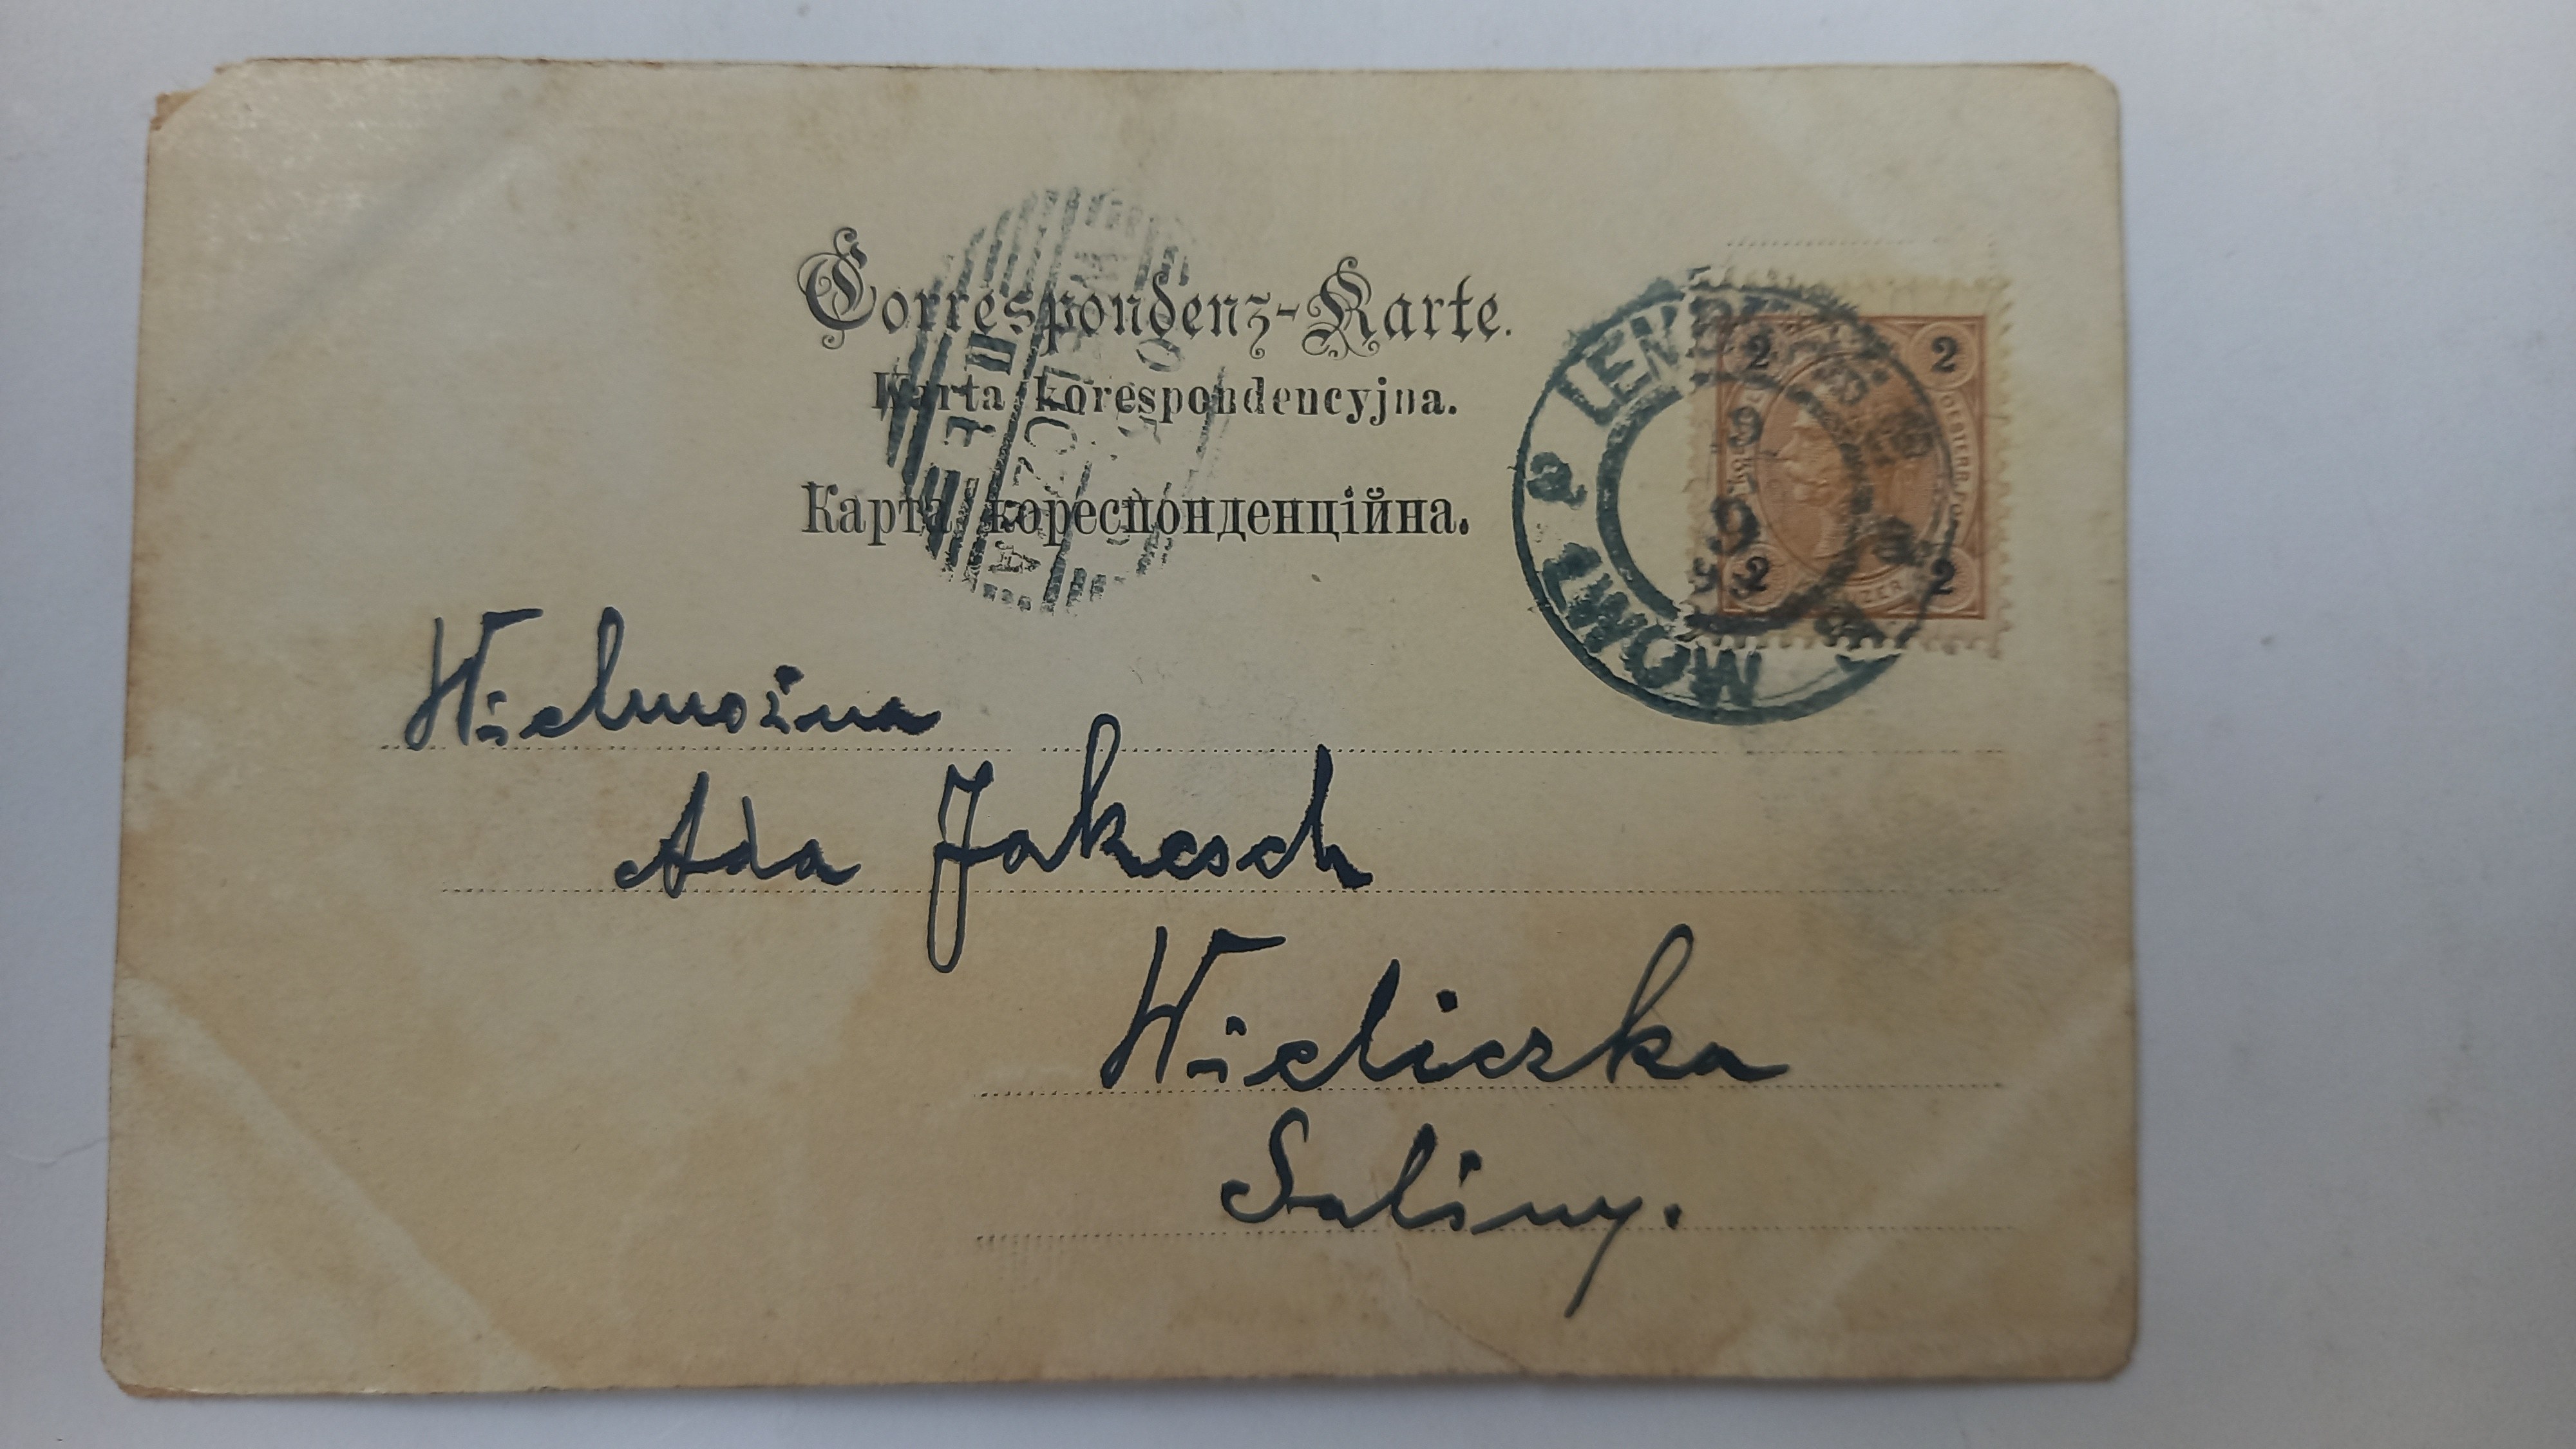 Correspondenz-Karte.
Karta korespondencyjna.
Карта кореспонденційна.
2 2
2 2
9
9
Wielmożna
Ada Jakesch
Wieliczka
Saliny.